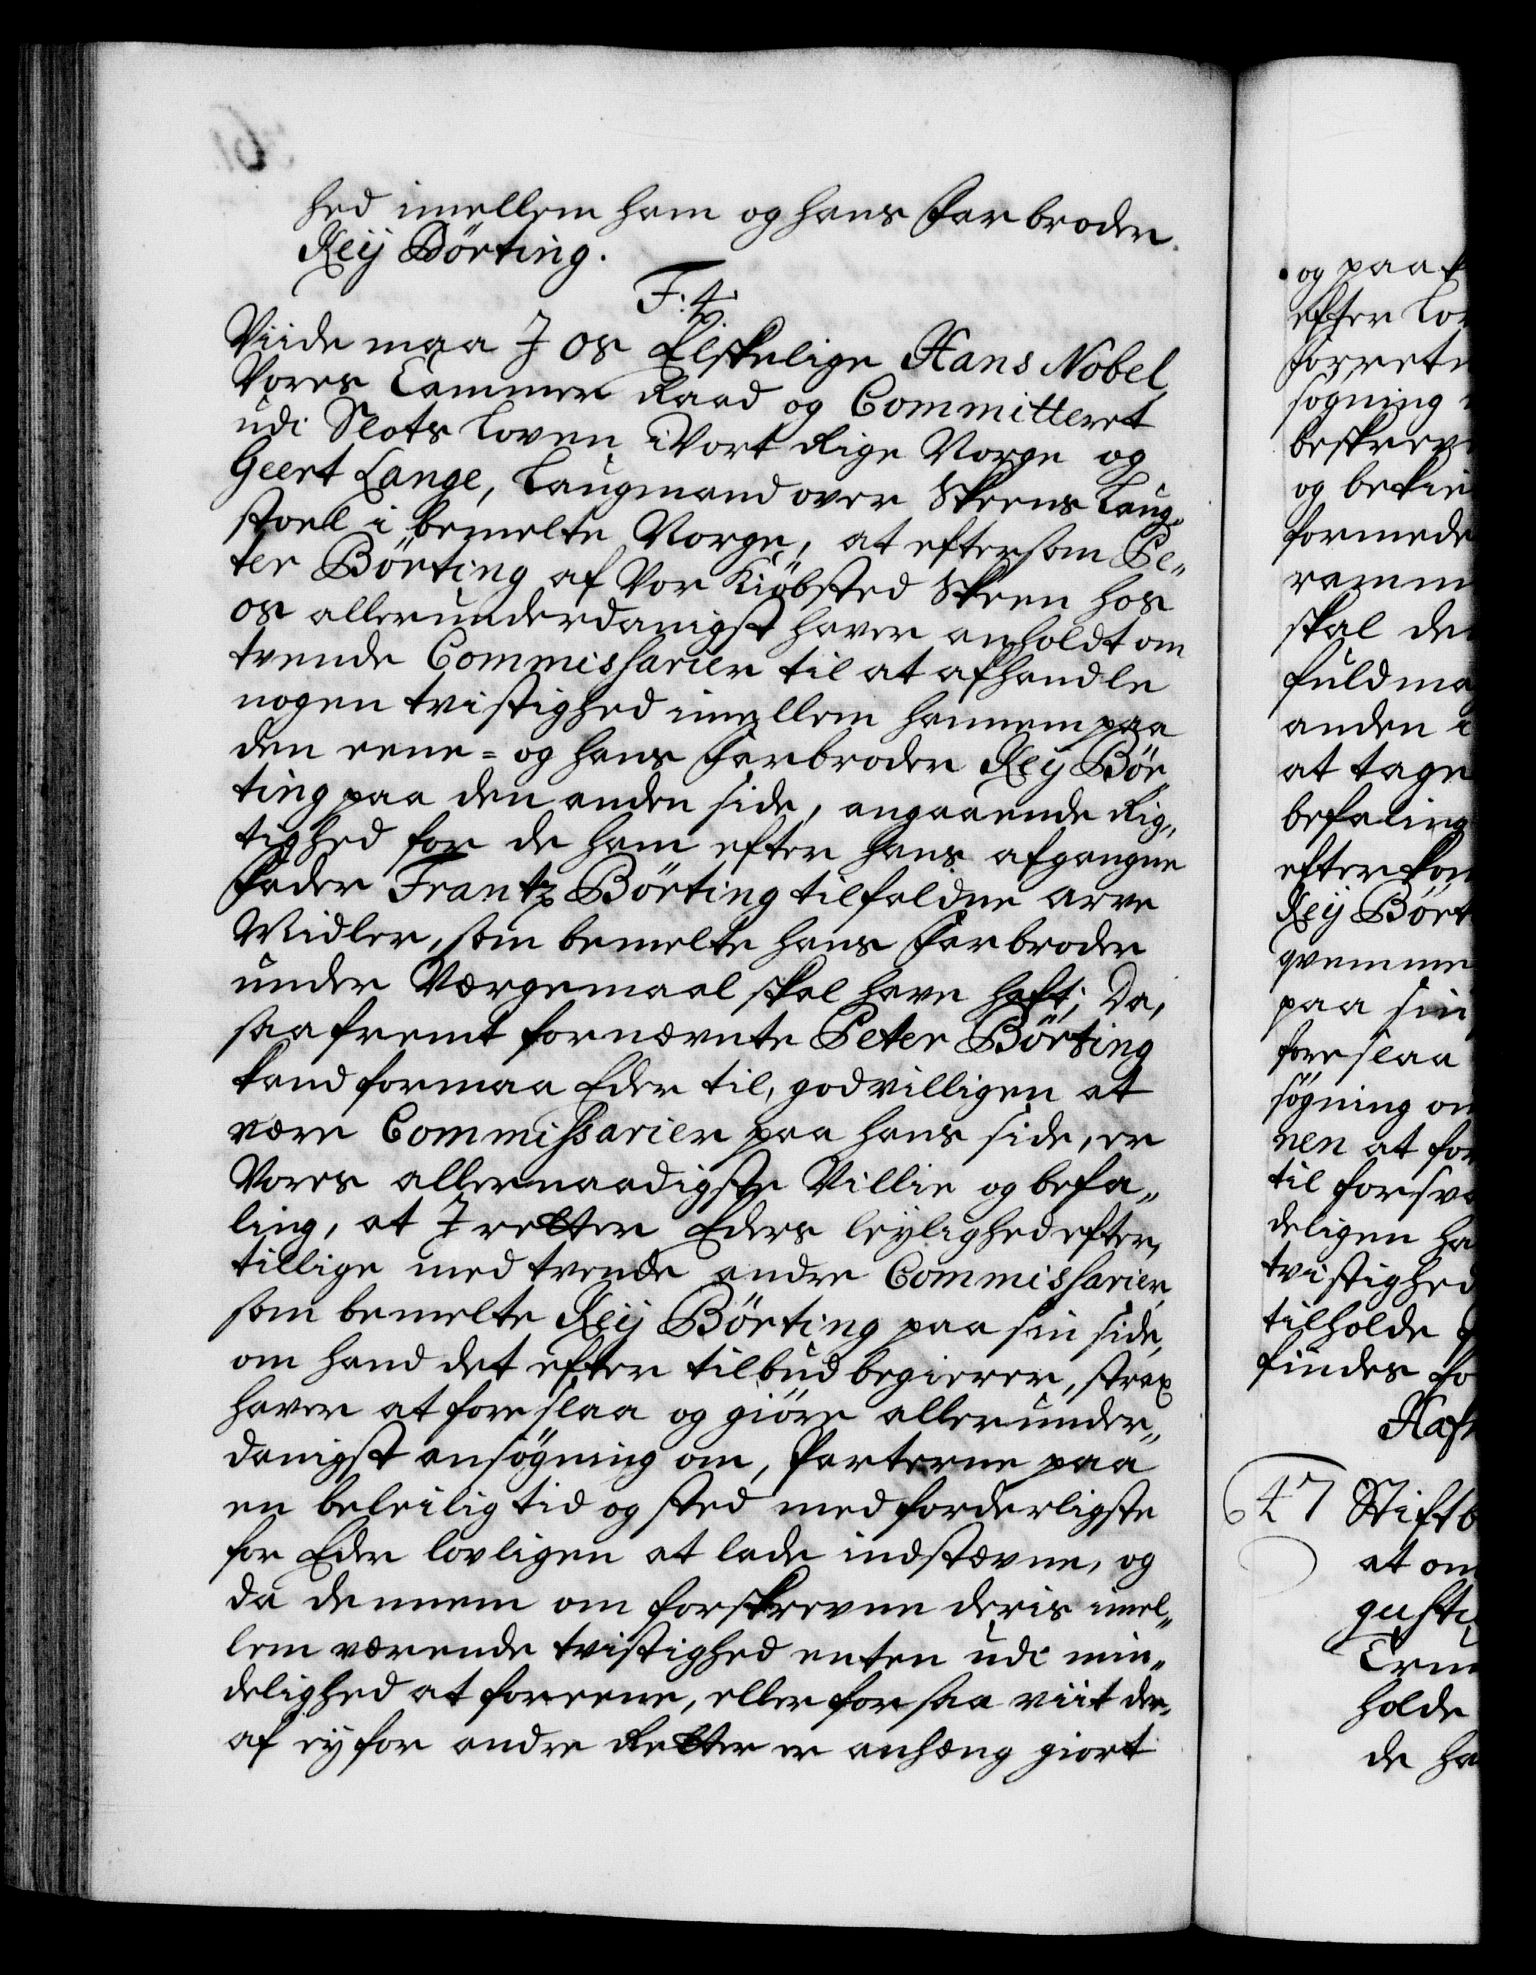 hed imellem ham og hans Farbroder
Reij Börting.
F. 4.
Viide maa J os Elskelige Hans Nobel
Vores Cammer Raad og Committeret
udi Slots Loven i Vort Rige Norge og
Geert Lange, Laugmand over Skeens Laug„
stoel i bemelte Norge, at eftersom Pe„
ter Börting af Vor Kiöbsted Skeen hos
os allerunderdanigst haver anholdt om
tvende Commissarier til at afhandle
nogen tvistighed imellem hannem paa
den eene= og hans Farbroder Reij Bör„
ting paa den anden side, angaaende Rig„
tighed for de ham efter hans afgangne
Fader Frantz Börting tilfaldne arve
Midler, som bemelte hans Farbroder
under Værgemaal skal have haft; Da,
saafremt fornævnte Peter Börting
kand formaa Eder til, godvilligen at
være Commissarier paa hans side, er
Vores allernaadigste Villie og befa„
ling, at J retter Eders leylighed efter,
tillige med tvende andre Commissarier,
som bemelte Reij Börting paa sin side,
om hand det efter tilbud begierer, strax
haver at foreslaa og giöre allerunder„
danigst ansögning om, Parterne paa
en beleilig tid og sted med forderligste
for Eder lovligen at lade indstævne, og
da dennem om forskrevne deris imel„
lem værende tvistighed enten udi min„
delighed at foreene, eller for saa viit der„
af ej for andre Retter er anhæng giort
og paa
efter Lo
forret
sögning
beskrev
og bekie
formede
ramm
skal de
fuldma
anden i
at tage
befaling
efterkom
Reij Bört
qvemme
paa sin
foreslaa
sögning om
nen at for
til forsva
deligen ha
tvistighed
tilholde
findes fo
Hafn
47 Stiftb
at om
gusti
Crim
holde
de ha